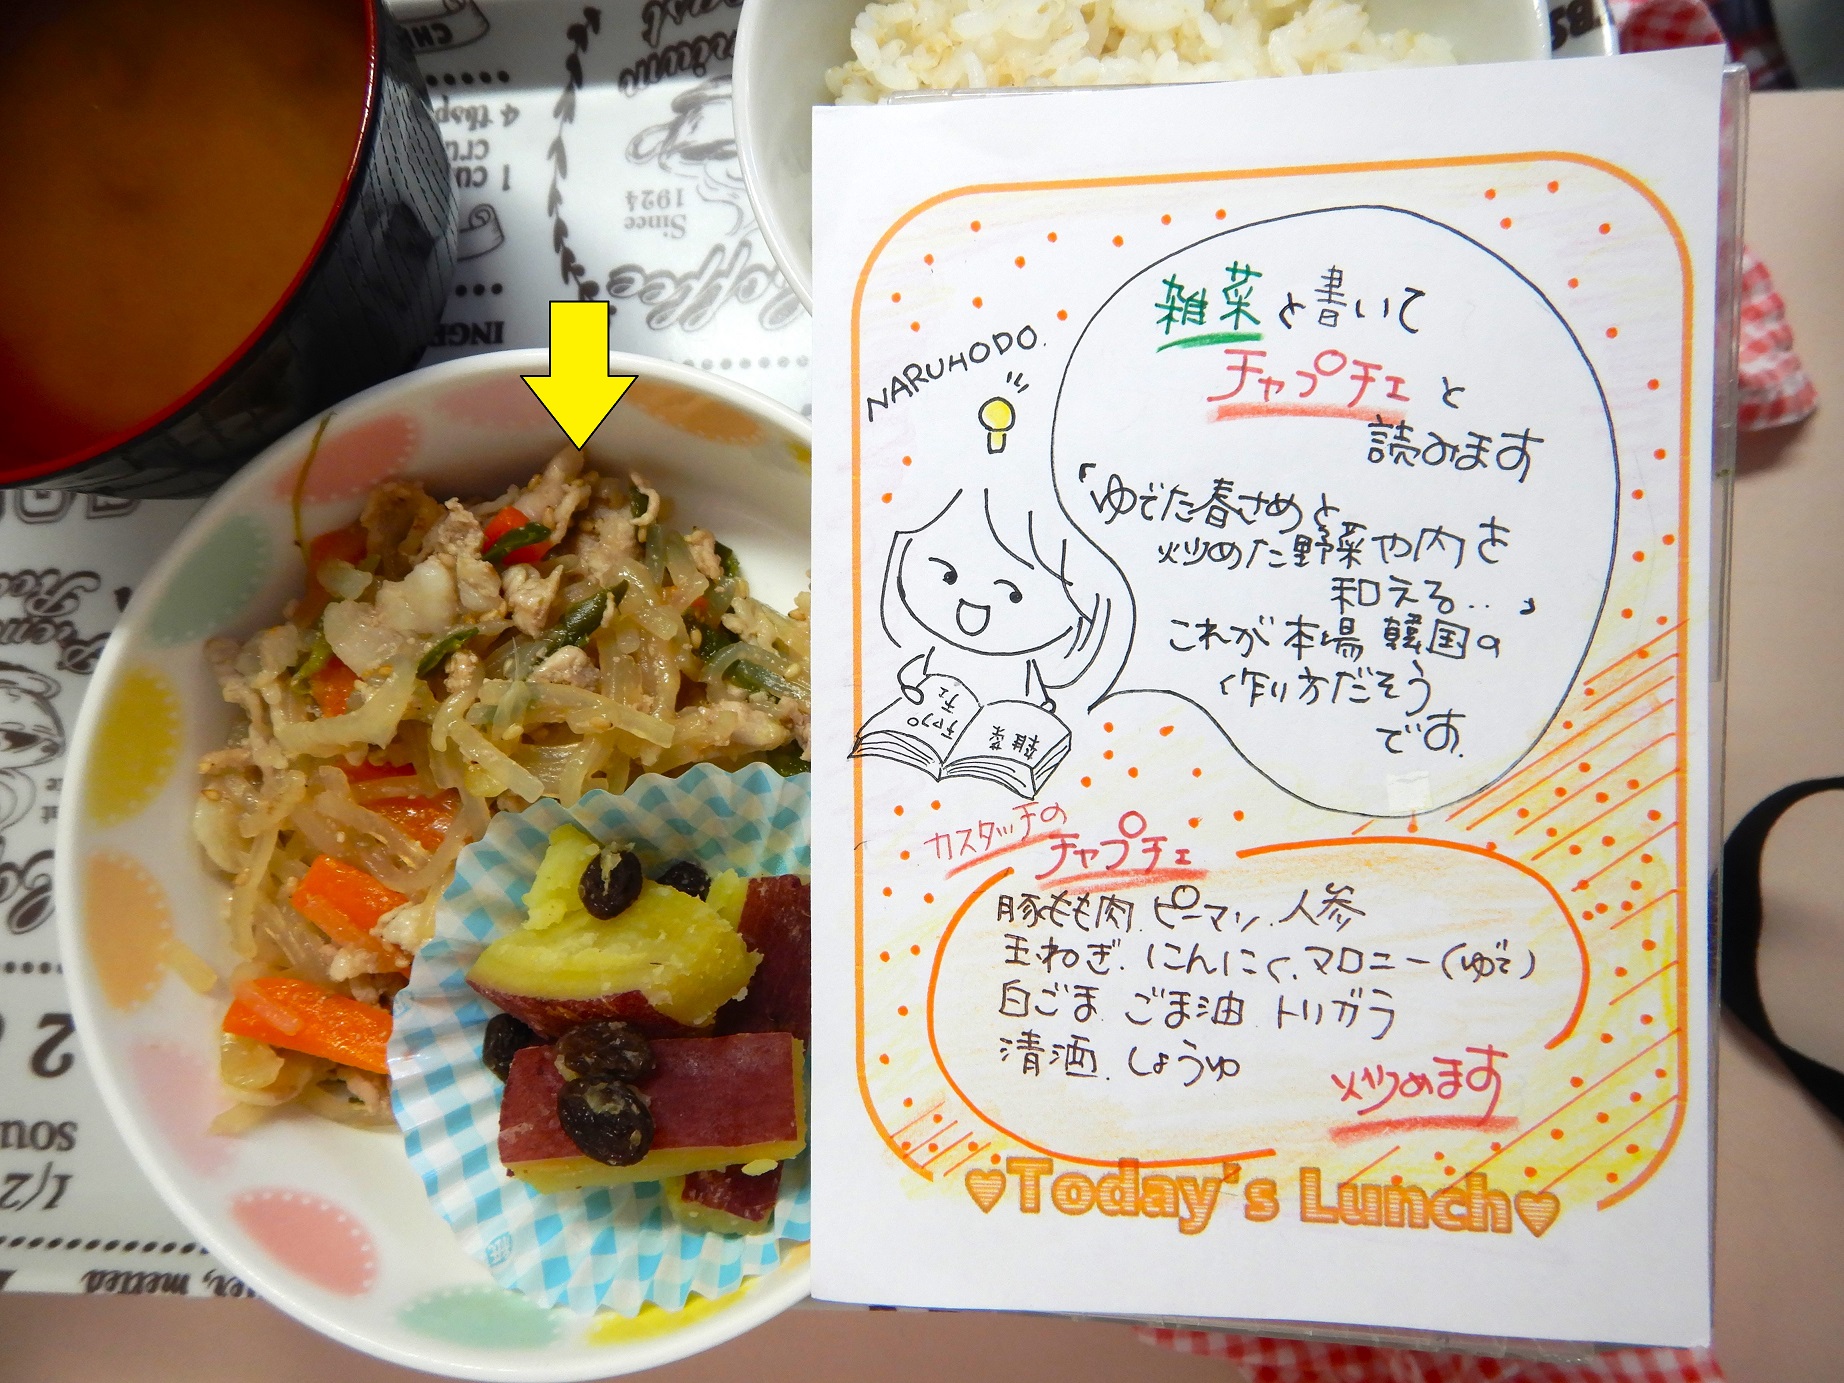 雑菜と書いて
チャプチェと
読みます
「ゆでた春さめと
炒めた野菜や肉を
和える…」
これが本場韓国の
作り方だそう
です.
NARUHODO.
チャプチェ
雑菜
カスタッチの
チャプチェ
豚もも肉.ピーマン.人参
玉ねぎ.にんにく.マロニー(ゆで)
白ごま ごま油 トリガラ
清酒.しょうゆ
炒めます
♥Today's Lunch♥
4 tbsp
1 cu
Since
1924
Coffee
INGR
2
1/2
sour
er, melted